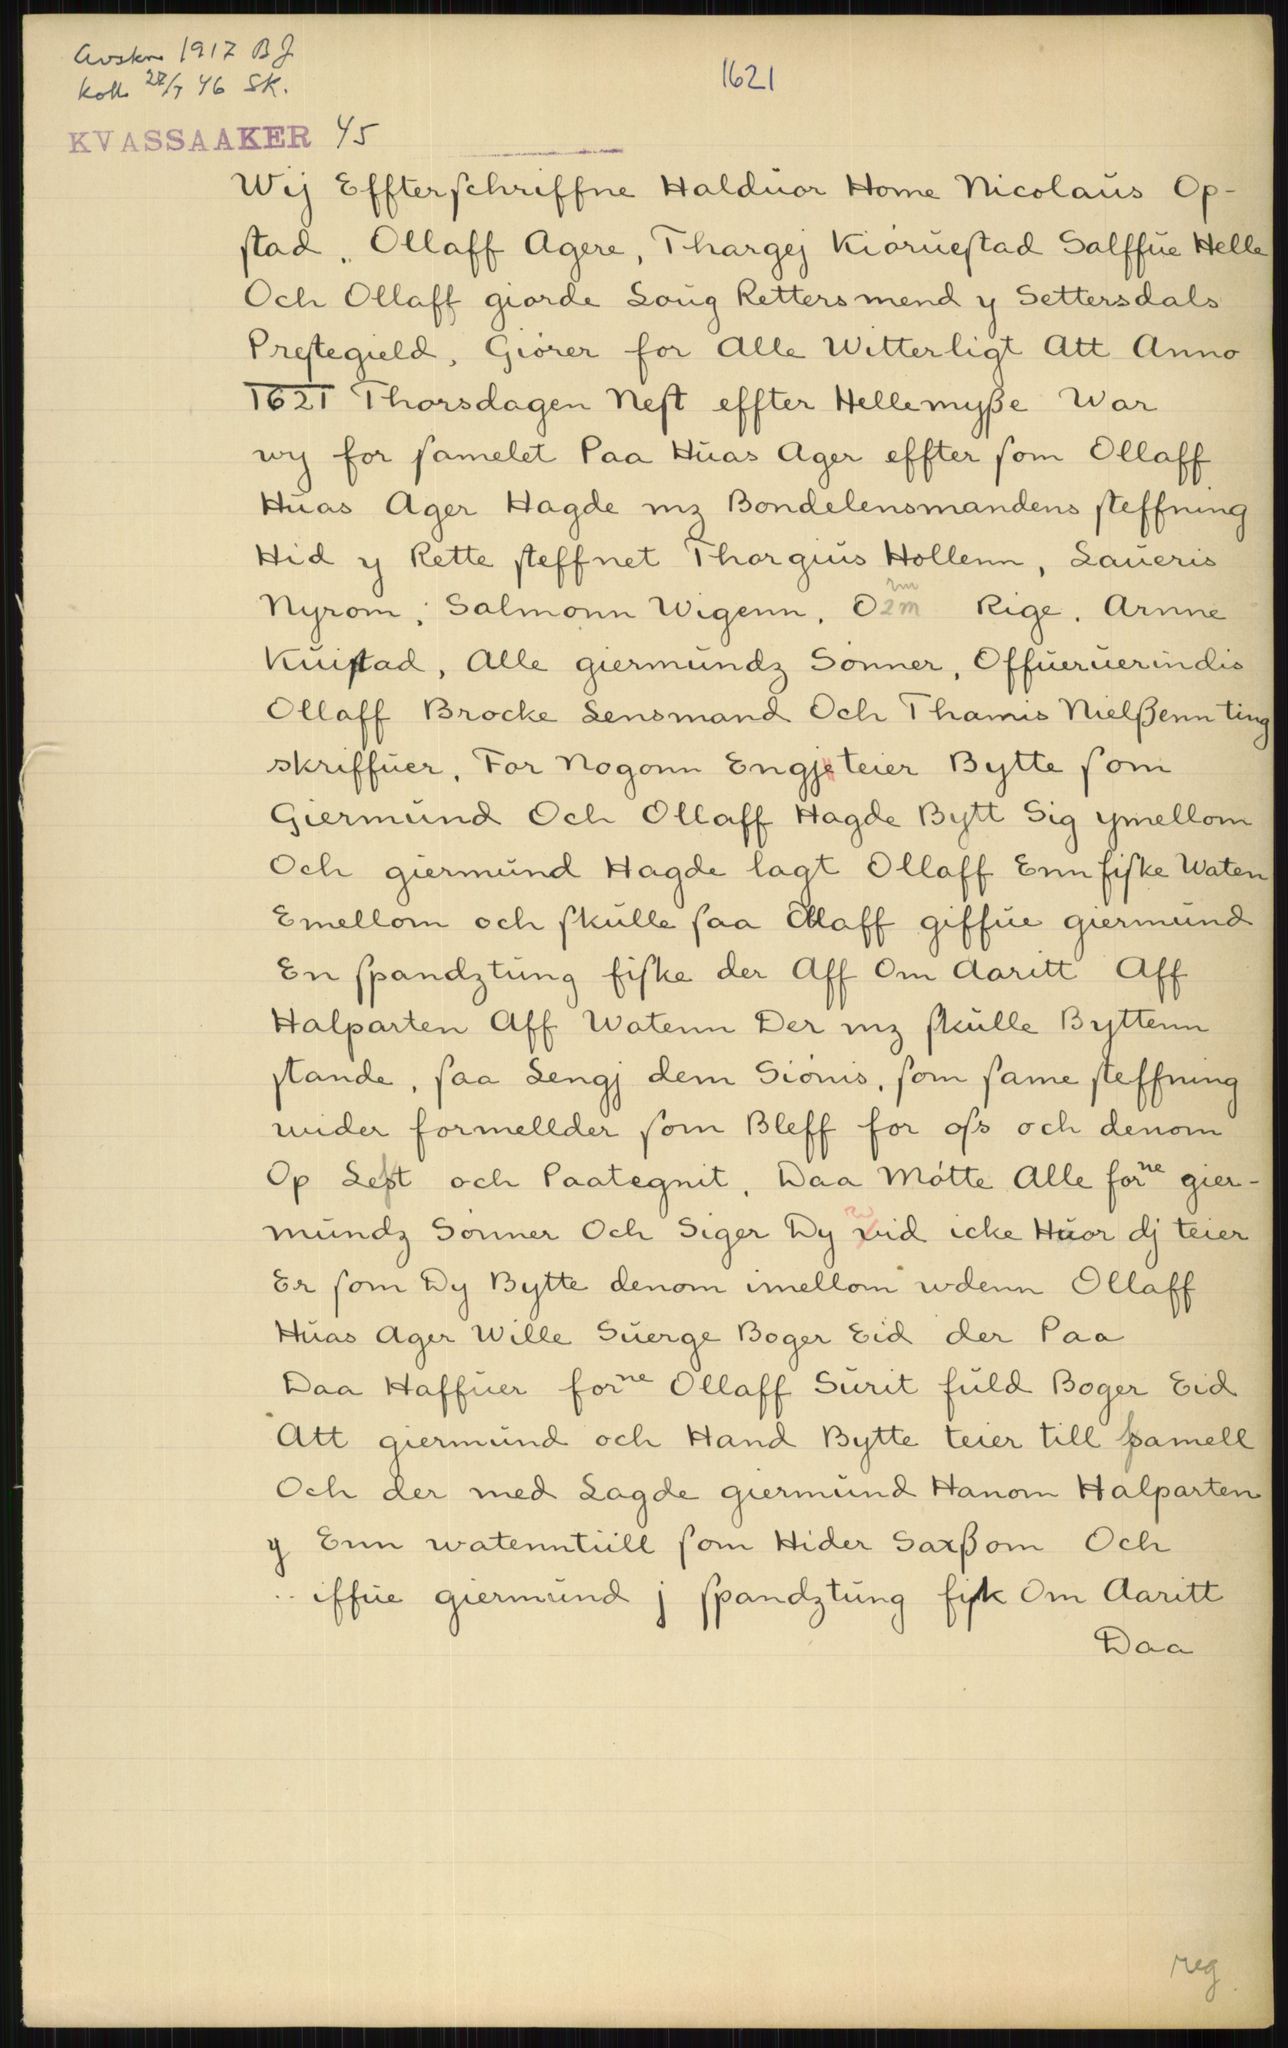 Avskr. 1917 BJ
Koll. 28/7 46 SK.
1621
KVASSAAKER 45
Wij Effterſchriffne Halduor Home Nicolaus Op-
ſtad, Ollaff Agere, Thargej Kiórueſtad Salffue Helle
Och Ollaff giorde Loug Rettersmend y Settersdals
Preſtegield, Giórer for Alle Witterligt Att Anno
1621 Thorsdagen Neſt effter Hellemyße War
wy for ſamelet Paa Huas Ager effter ſom Ollaff
Huas Ager Hagde mz Bondelensmandens ſteffning
Hid y Rette ſteffnet Thorgius Hollenn, Laueris
Nyrom, Salmonn Wigenn, Rige, Arnne
Kuiſtad, Alle giermundz Sónner, Offueruerindis
Ollaff Brocke Lensmand Och Thamis Nielßenn ting
skriffuer, For Nogonn Engje teier Bytte ſom
Giermund Och Ollaff Hagde Bytt Sig ymellom
Och giermund Hagde lagt Ollaff Enn fiſke Waten
Emellom och ſkulle ſaa Ollaff giffue giermund
En ſpandztung fiſke der Aff Om Aaritt Aff
Halparten Aff Watenn Der mz ſkulle Byttenn
ſtande, ſaa Lengj dem Siónis, ſom ſame ſteffning
uider formellder ſom Bleff for oſs och denom
Op Leſt och Paategnit, Daa Mótte Alle forne gier-
mundz Sónner Och Siger Dy vid icke Huor dj teier
Er ſom Dy Bytte denom imellom wdenn Ollaff
Huas Ager Wille Suerge Boger Eid der Paa
Daa Haffuer forne Ollaff Surit fuld Boger Eid
Att giermund och Hand Bytte teier till ſamell
Och der med Lagde giermund Hanom Halparten
y Enn watenntiill ſom Hider Saxßom Och
.. iffue giermund j ſpandztung fiſk Om Aaritt
Daa
reg